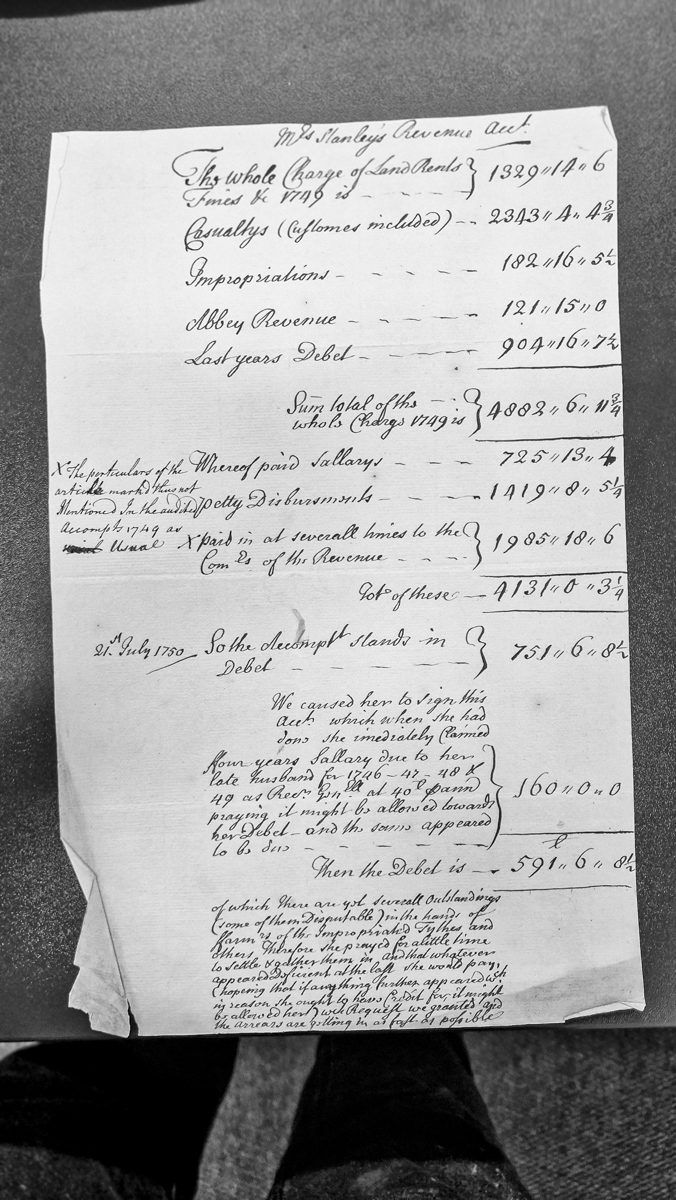 Mrs Stanley's Revenue Acct.
The whole Charge of Land Rents
Fines &c 1749 is - - - - } 1329 " 14 " 6
Casualtys (Customes included) -- 2343 " 4 " 4 3/4
Impropriations - - - - - 182 " 16 " 5 1/2
Abbey Revenue - - - - 121 " 15 " 0
Last years Debet - - - - 904 " 16 " 7 1/2
Sum total of the - - -
whole Charge 1749 is } 4882 " 6 " 11 3/4
Whereof paid Sallarys - - - 725 " 13 " 4
petty Disbursments - - - 1419 " 8 " 5 1/4
X The perticulars of the
article markd thus not
Mentioned In the audited
Accompts 1749 as
Usual
X paid in at severall times to the
Comrs of the Revenue - - - } 1985 " 18 " 6
Tot. of these — 4131 " 0 " 3 1/4
21st July 1750 So the Accomptt stands in
Debet - - - - - } 751 " 6 " 8 1/2
We caused her to sign this
Acct. which when she had
done she imediately Claimed
ffour years Sallary due to her
late husband for 1746 - 47 - 48 &
49 as Recr. Genll at 40l p ann
praying it might be allowed towards
her Debet - and the same appeared
to be due - - - - - } 160 " 0 " 0
Then the Debet is — l 591 " 6 " 8 1/2
of which there are yet Severall Outstandings
(some of them Desputable) in the hands of
ffarmrs of the Impropriated Tythes and
others Therefore she prayed for a little time
to Settle & gather them in, and that whatever
appeared Deficient at the last she would pay,
(hopeing that if any thing further appeared wch
in reason she ought to have Credit for, it might
be allowed her) wch Request we granted and
the arrears are getting in as fast as possible